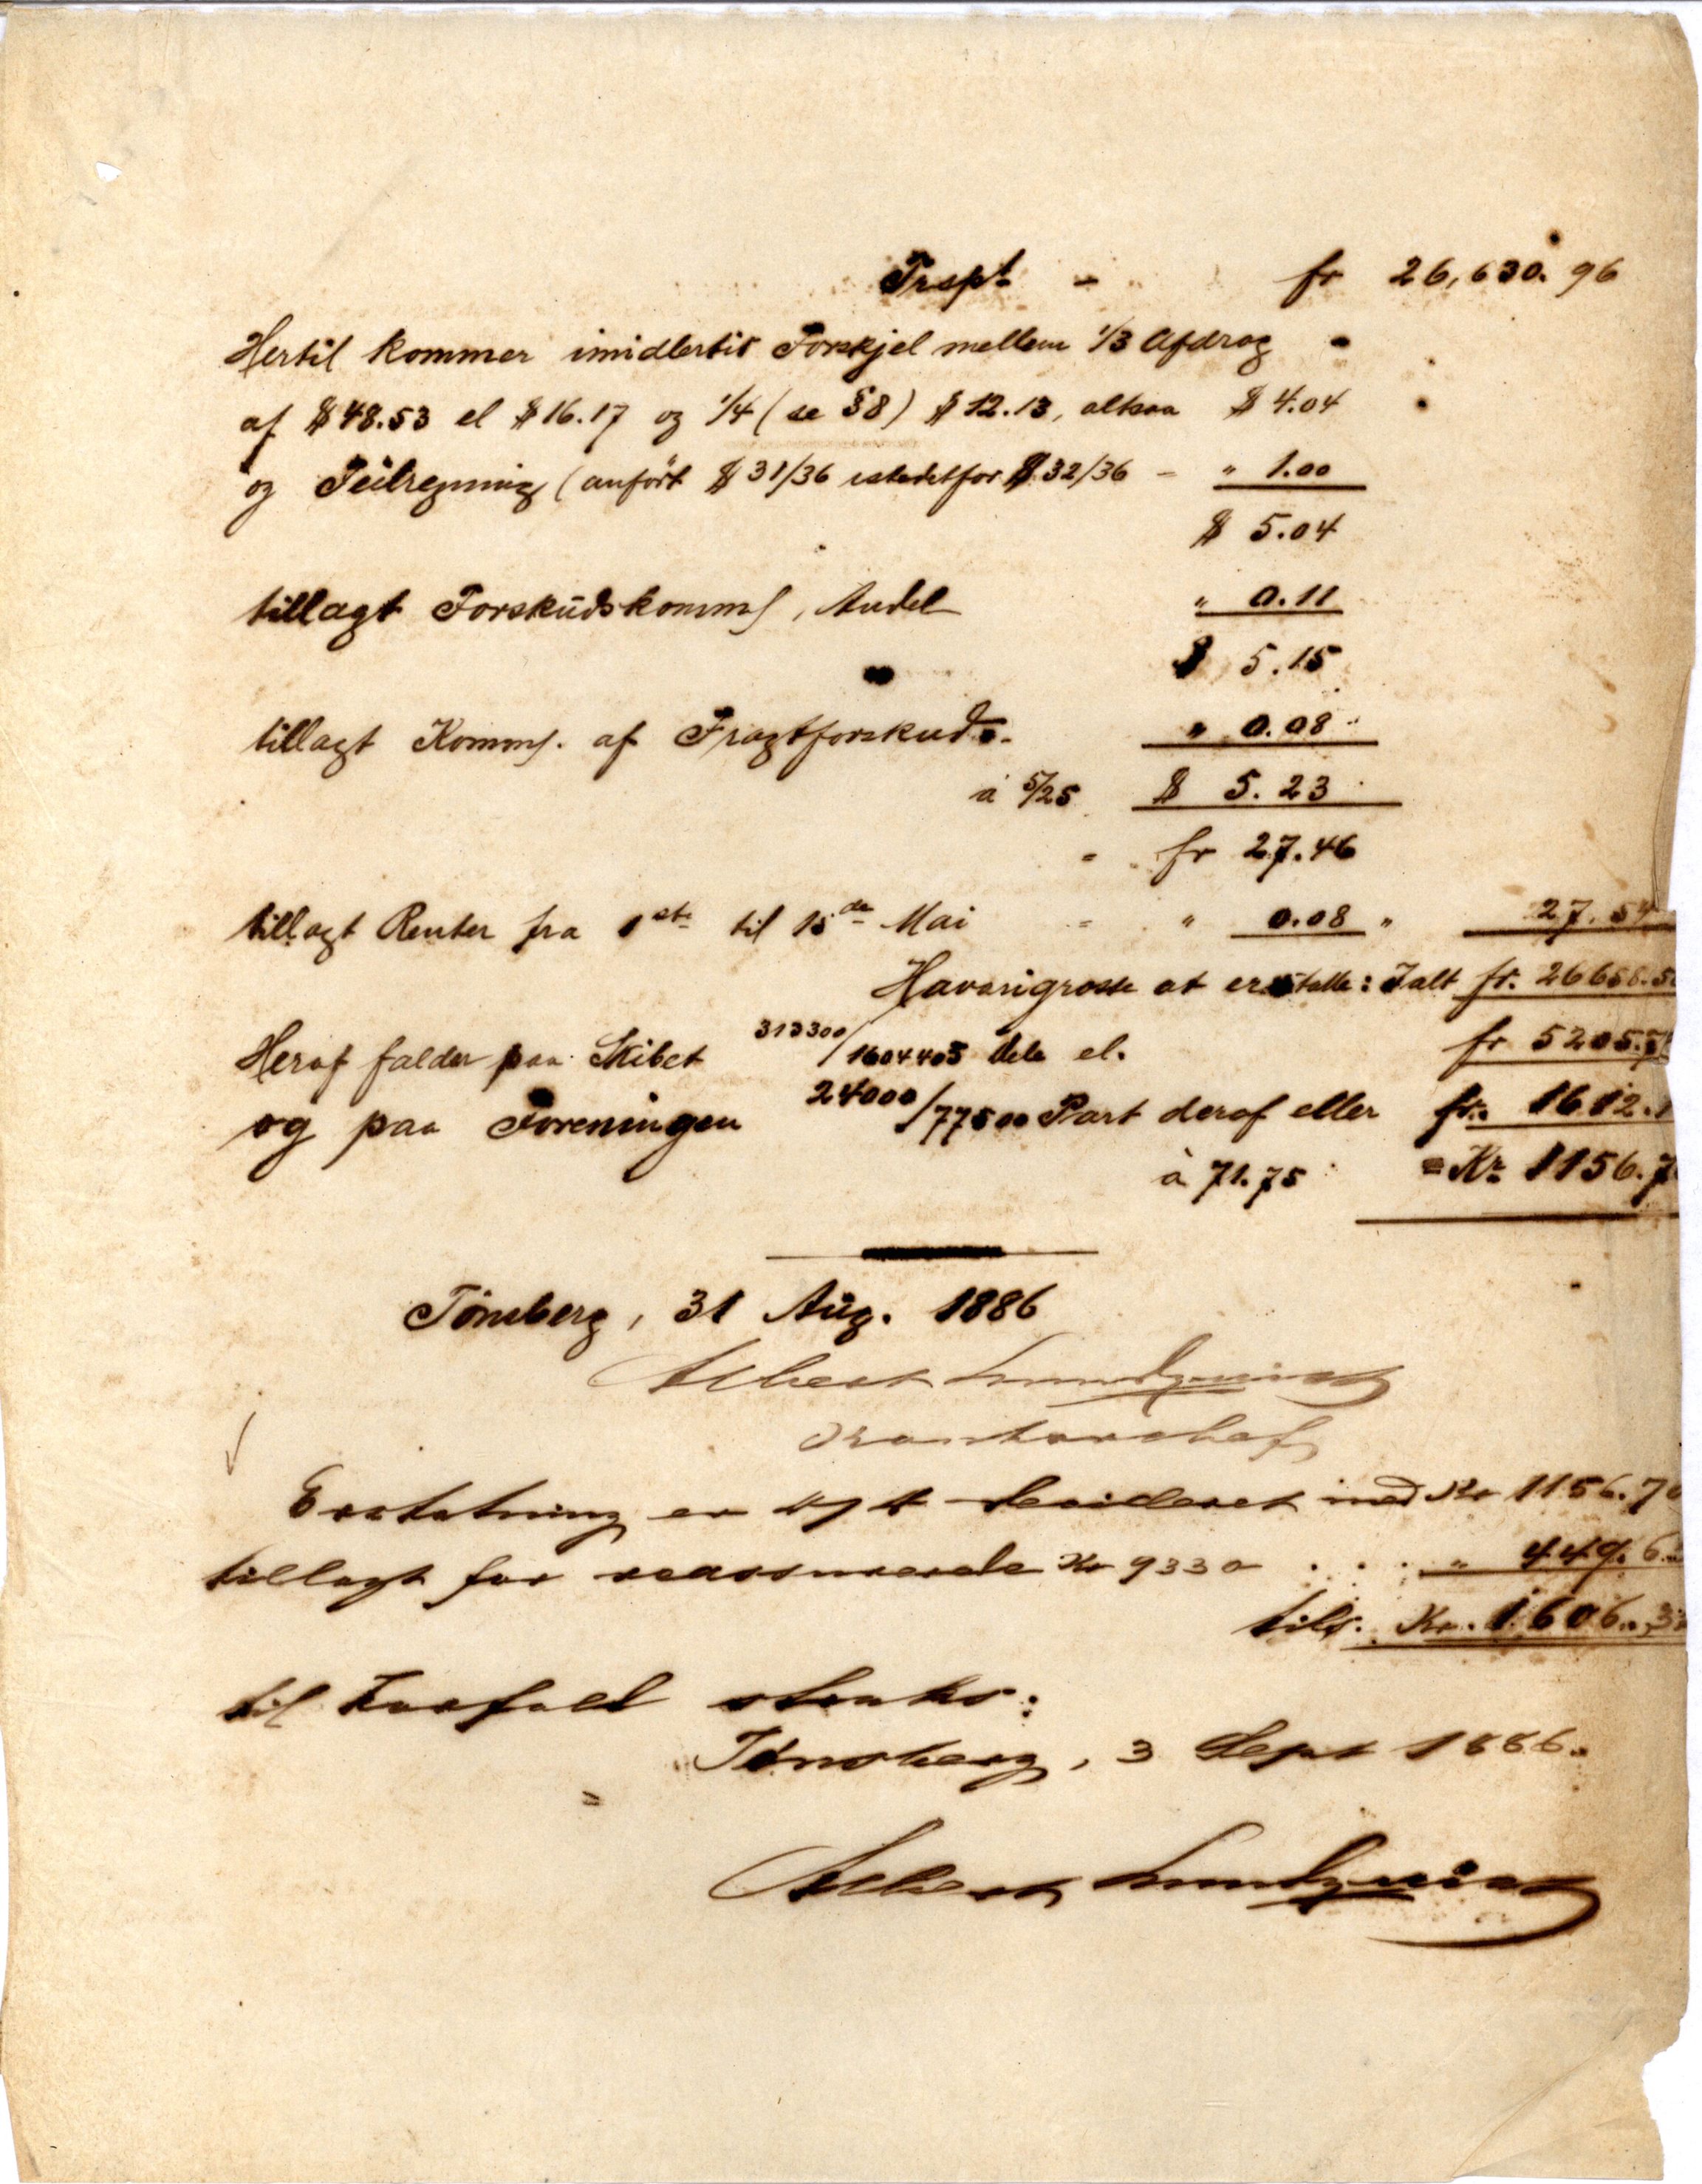 Trspt - fr 26,630.96
Hertil kommer imidlertid Forskjel mellem 1/3 Afdrag
af $ 48.53 el $ 16.17 og 1/4 (se §8) $ 12.13, altsaa $ 4.04
og Feilregning (anført $ 31/36 istedetfor $ 32/36 - " 1.00
$ 5.04
tillagt Forskudskomms, Andel " 0.11
$ 5.15
tillagt Komms. af Fragtforskud. " 0.08
à 5/25 $ 5.23
= fr 27.46
tillagt Renter fra 1ste til 15de Mai = " 0.08 " 27.54
Havarigrosse at erstatte: Ialt fr. 26658.5
Heraf falder paa Skibet 313300/1604405 dele el. fr 5205.
og paa Foreningen 24000/77500 Part deraf eller fr. 1612.
à 71.75 = Kr 1156.7
Tönsberg, 31 Aug. 1886
Albert Lundquist
Erstatning er decideret med Kr 1156.70
tillagt for reassurerede Kr 9330 . . . " 449.6
tils. Kr. 1606.3
til Forfald straks:
Tönsberg, 3 Sept 1886.
Albert Lundquist